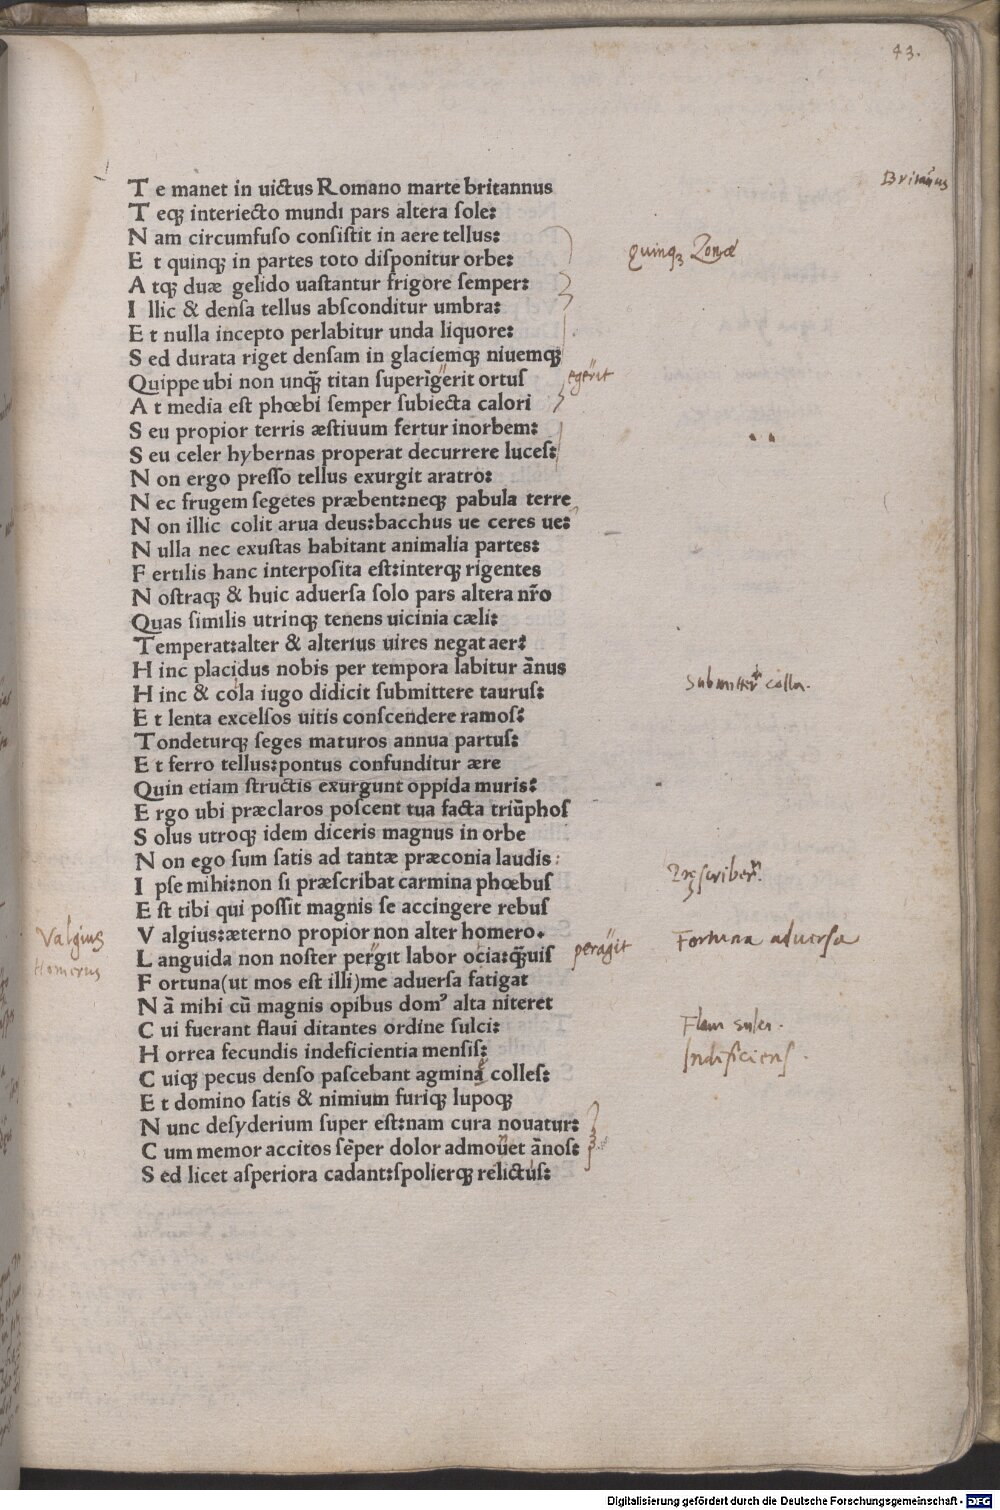 43.
T e manet in uictus Romano marte britannus
Britānus
T eqꝫ interiecto mundi pars altera ſole:
N am circumfuſo conſiſtit in aere tellus:
E t quinqꝫ in partes toto diſponitur orbe:
Quinqꝫ Zonæ
A tqꝫ duæ gelido uaſtantur frigore ſemper:
I llic & denſa tellus abſconditur umbra:
E t nulla incepto perlabitur unda liquore:
S ed durata riget denſam in glaciemqꝫ niuemqꝫ
Quippe ubi non unq̄ꝫ titan ſuperigerit ortuſ
egerit
A t media eſt phœbi ſemper ſubiecta calori
S eu propior terris æſtiuum fertur inorbem:
S eu celer hybernas properat decurrere luceſ:
N on ergo preſſo tellus exurgit aratro:
N ec frugem ſegetes præbent:neqꝫ pabula terre
N on illic colit arua deus:bacchus ue ceres ue:
N ulla nec exuſtas habitant animalia partes:
F ertilis hanc interpoſita eſt:interqꝫ rigentes
N oſtraqꝫ & huic aduerſa ſolo pars altera nr̄o
Quas ſimilis utrinqꝫ tenens uicinia cæli:
Temperat:alter & alterius uires negat aer:
H inc placidus nobis per tempora labitur ānus
H inc & cola iugo didicit ſubmittere tauruſ:
Submittere colla.
E t lenta excelſos uitis conſcendere ramoſ:
Tondeturqꝫ ſeges maturos annua partuſ:
E t ferro tellus:pontus confunditur ære
Quin etiam ſtructis exurgunt oppida muris:
E rgo ubi præclaros poſcent tua facta triūphoſ
S olus utroqꝫ idem diceris magnus in orbe
N on ego ſum ſatis ad tantæ præconia laudis:
I pſe mihi:non ſi præſcribat carmina phœbuſ
Præſcribere.
E ſt tibi qui poſſit magnis ſe accingere rebuſ
V algius:æterno propior non alter homero.
Valgius
Homerus
Fortuna aduerſa
L anguida non noſter pergit labor ocia:q̄ꝫuis
peragit
F ortuna(ut mos eſt illi)me aduerſa fatigat
N ā mihi cū magnis opibus domꝰ alta niteret
C ui fuerant flaui ditantes ordine ſulci:
Flaui sulci.
H orrea fecundis indeficientia menſiſ:
Indeficiens.
C uiqꝫ pecus denſo paſcebant agmina colleſ:
E t domino ſatis & nimium furiqꝫ lupoqꝫ
N unc deſyderium ſuper eſt:nam cura nouatur:
C um memor accitos ſēper dolor admouet ānoſ:
S ed licet aſperiora cadant:ſpolierqꝫ relictuſ:
Digitalisierung gefördert durch die Deutsche Forschungsgemeinschaft - DFG